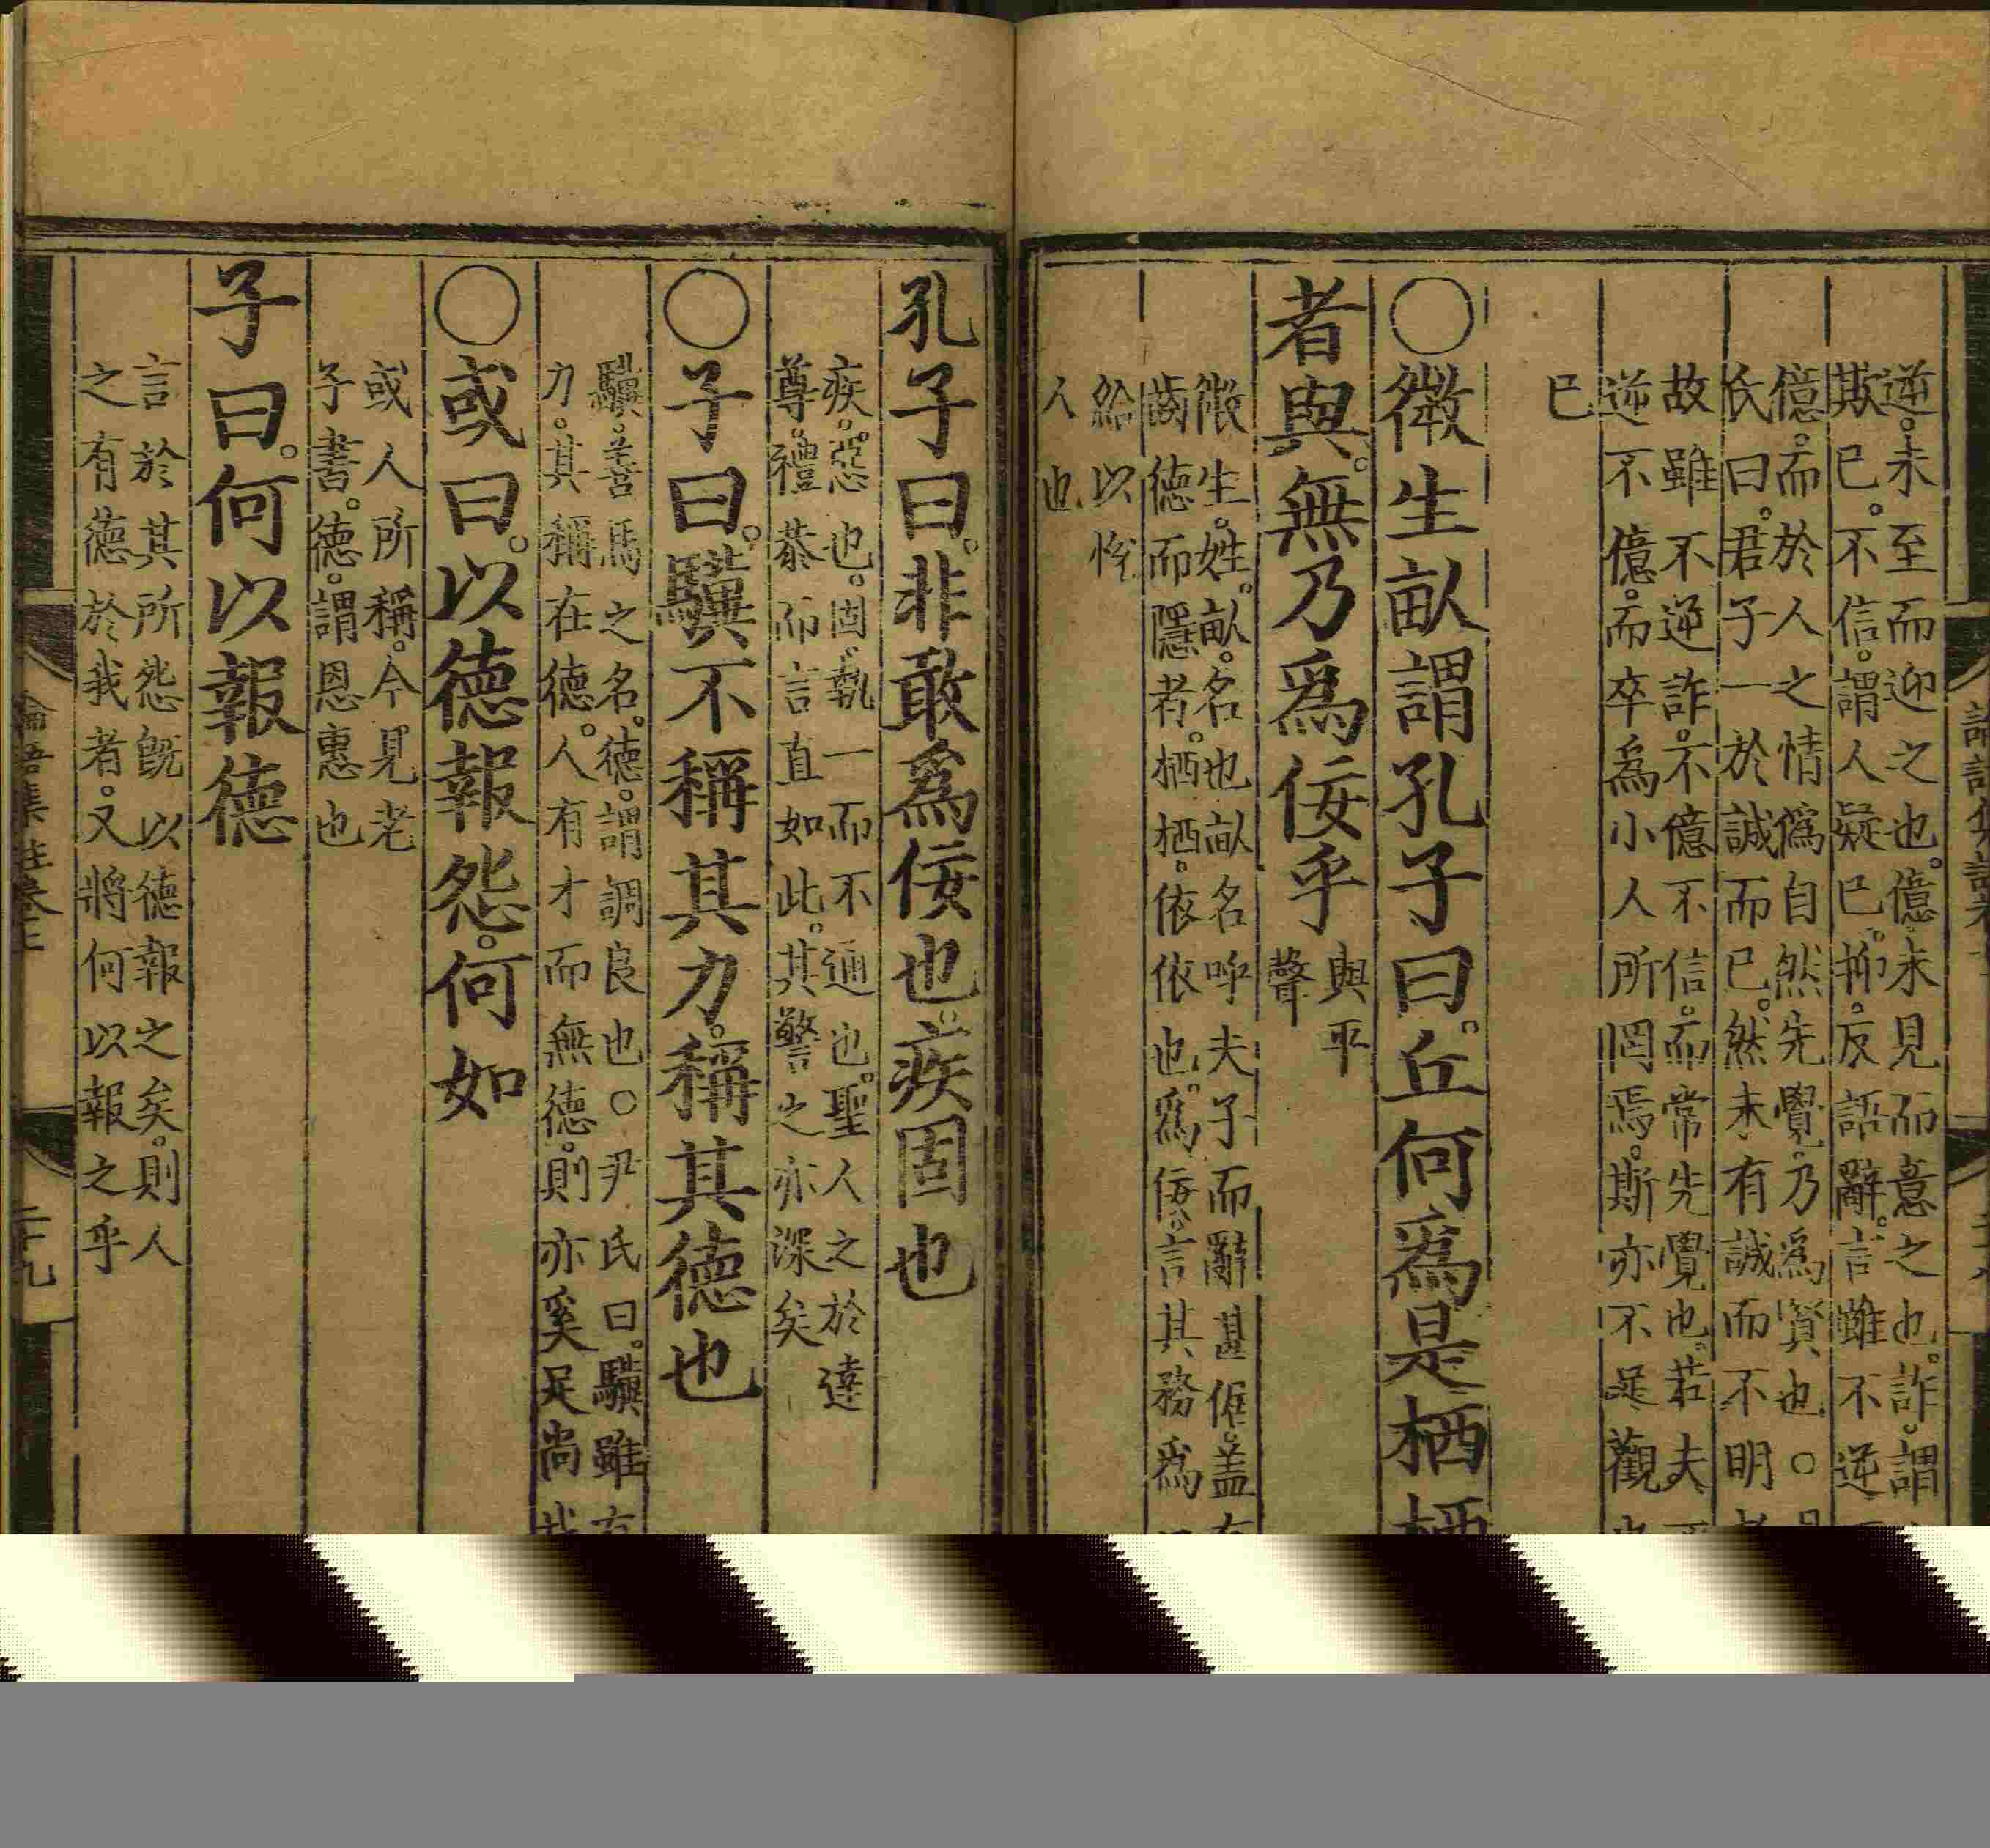 逆。未至而迎之也。億。未見而意之也。詐。謂
欺已。不信。謂人疑已。抑。反語辭。言雖不逆
億。而於人之情僞自然先覺。乃爲賢也○
氏曰。君子一於誠而已。然未有誠而不明
故雖不逆詐。不億不信。而常先覺也。若夫
逆不億。而卒爲小人所罔焉。斯亦不足觀
已
○微生畝謂孔子曰。丘何爲是栖栖
者與。無乃爲佞乎
與平
聲
微生。姓。畝。名也畝名呼夫子而辭甚倨。盖
齒德而隱者。栖栖。依依也。爲佞。言其務爲
給以悅
人也
孔子曰。非敢爲佞也。疾固也
疾。惡也。固。執一而不通也。聖人之於達
尊。禮恭而言直如此。其警之亦深矣
○子曰。驥不稱其力。稱其德也
驥。善馬之名。德。謂調良也○尹氏曰。驥雖有
力。其稱在德。人有才而無德。則亦奚足尚哉
○或曰。以德報怨。何如
或人所稱。今見老
子書。德。謂恩惠也
子曰。何以報德
言於其所怨旣以德報之矣。則人
之有德於我者。又將何以報之乎
論語集註卷三
二十九